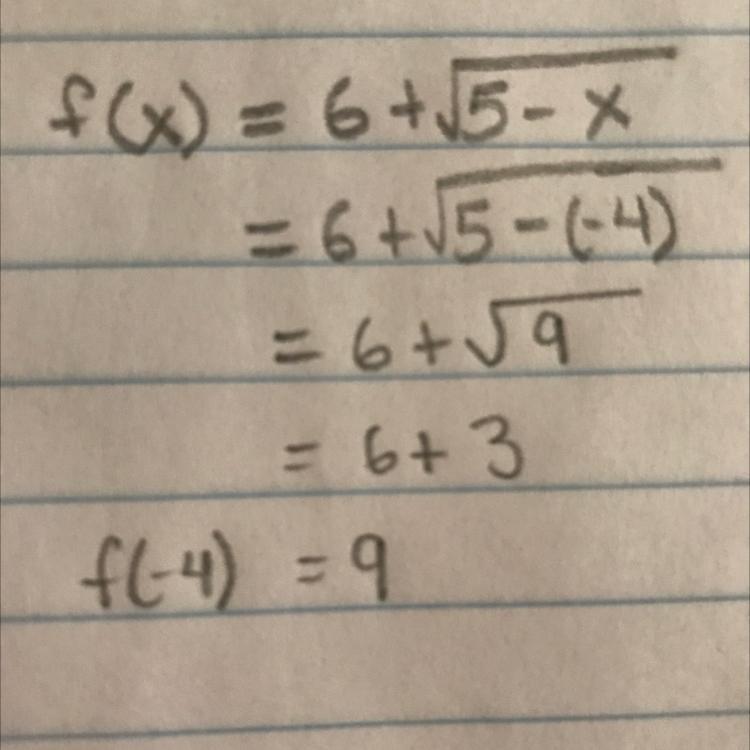 f(x) = 6 + √5 - x
= 6 + √5 - (-4)
= 6 + √9
= 6 + 3
f(-4) = 9